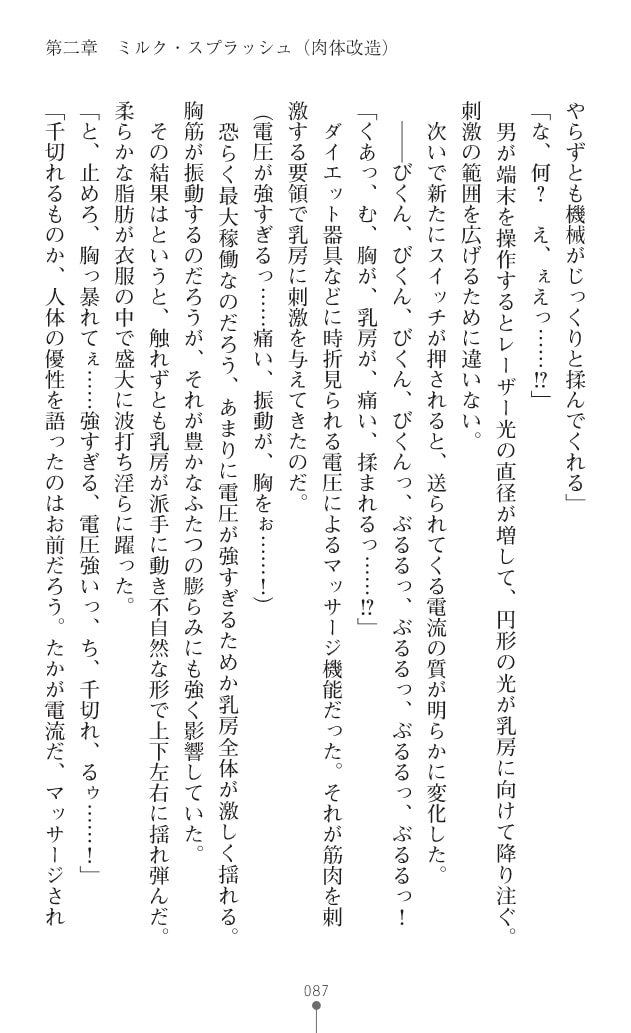 第二章　ミルク・スプラッシュ（肉体改造）
やらずとも機械がじっくりと揉んでくれる」
「な、何？　え、ぇえっ……!?」
男が端末を操作するとレーザー光の直径が増して、円形の光が乳房に向けて降り注ぐ。
刺激の範囲を広げるために違いない。
次いで新たにスイッチが押されると、送られてくる電流の質が明らかに変化した。
――びくん、びくん、びくん、びくんっ、ぶるるっ、ぶるるっ、ぶるるっ、ぶるるっ！
「くあっ、む、胸が、乳房が、痛い、揉まれるっ……!?」
ダイエット器具などに時折見られる電圧によるマッサージ機能だった。それが筋肉を刺
激する要領で乳房に刺激を与えてきたのだ。
（電圧が強すぎるっ……痛い、振動が、胸をぉ……！）
恐らく最大稼働なのだろう、あまりに電圧が強すぎるためか乳房全体が激しく揺れる。
胸筋が振動するのだろうが、それが豊かなふたつの膨らみにも強く影響していた。
その結果はというと、触れずとも乳房が派手に動き不自然な形で上下左右に揺れ弾んだ。
柔らかな脂肪が衣服の中で盛大に波打ち淫らに躍った。
「と、止めろ、胸っ暴れてぇ……強すぎる、電圧強いっ、ち、千切れ、るぅ……！」
「千切れるものか、人体の優性を語ったのはお前だろう。たかが電流だ、マッサージされ
087